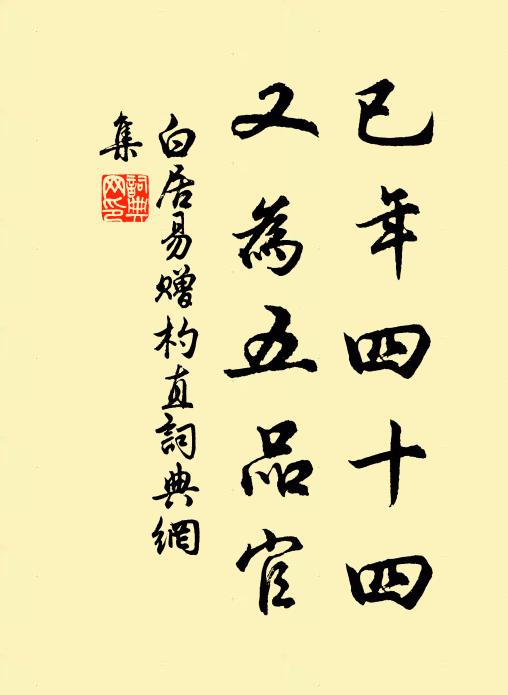 已年四十四
又為五品官
白居易贈杓直詞典網
集
詞典
网印